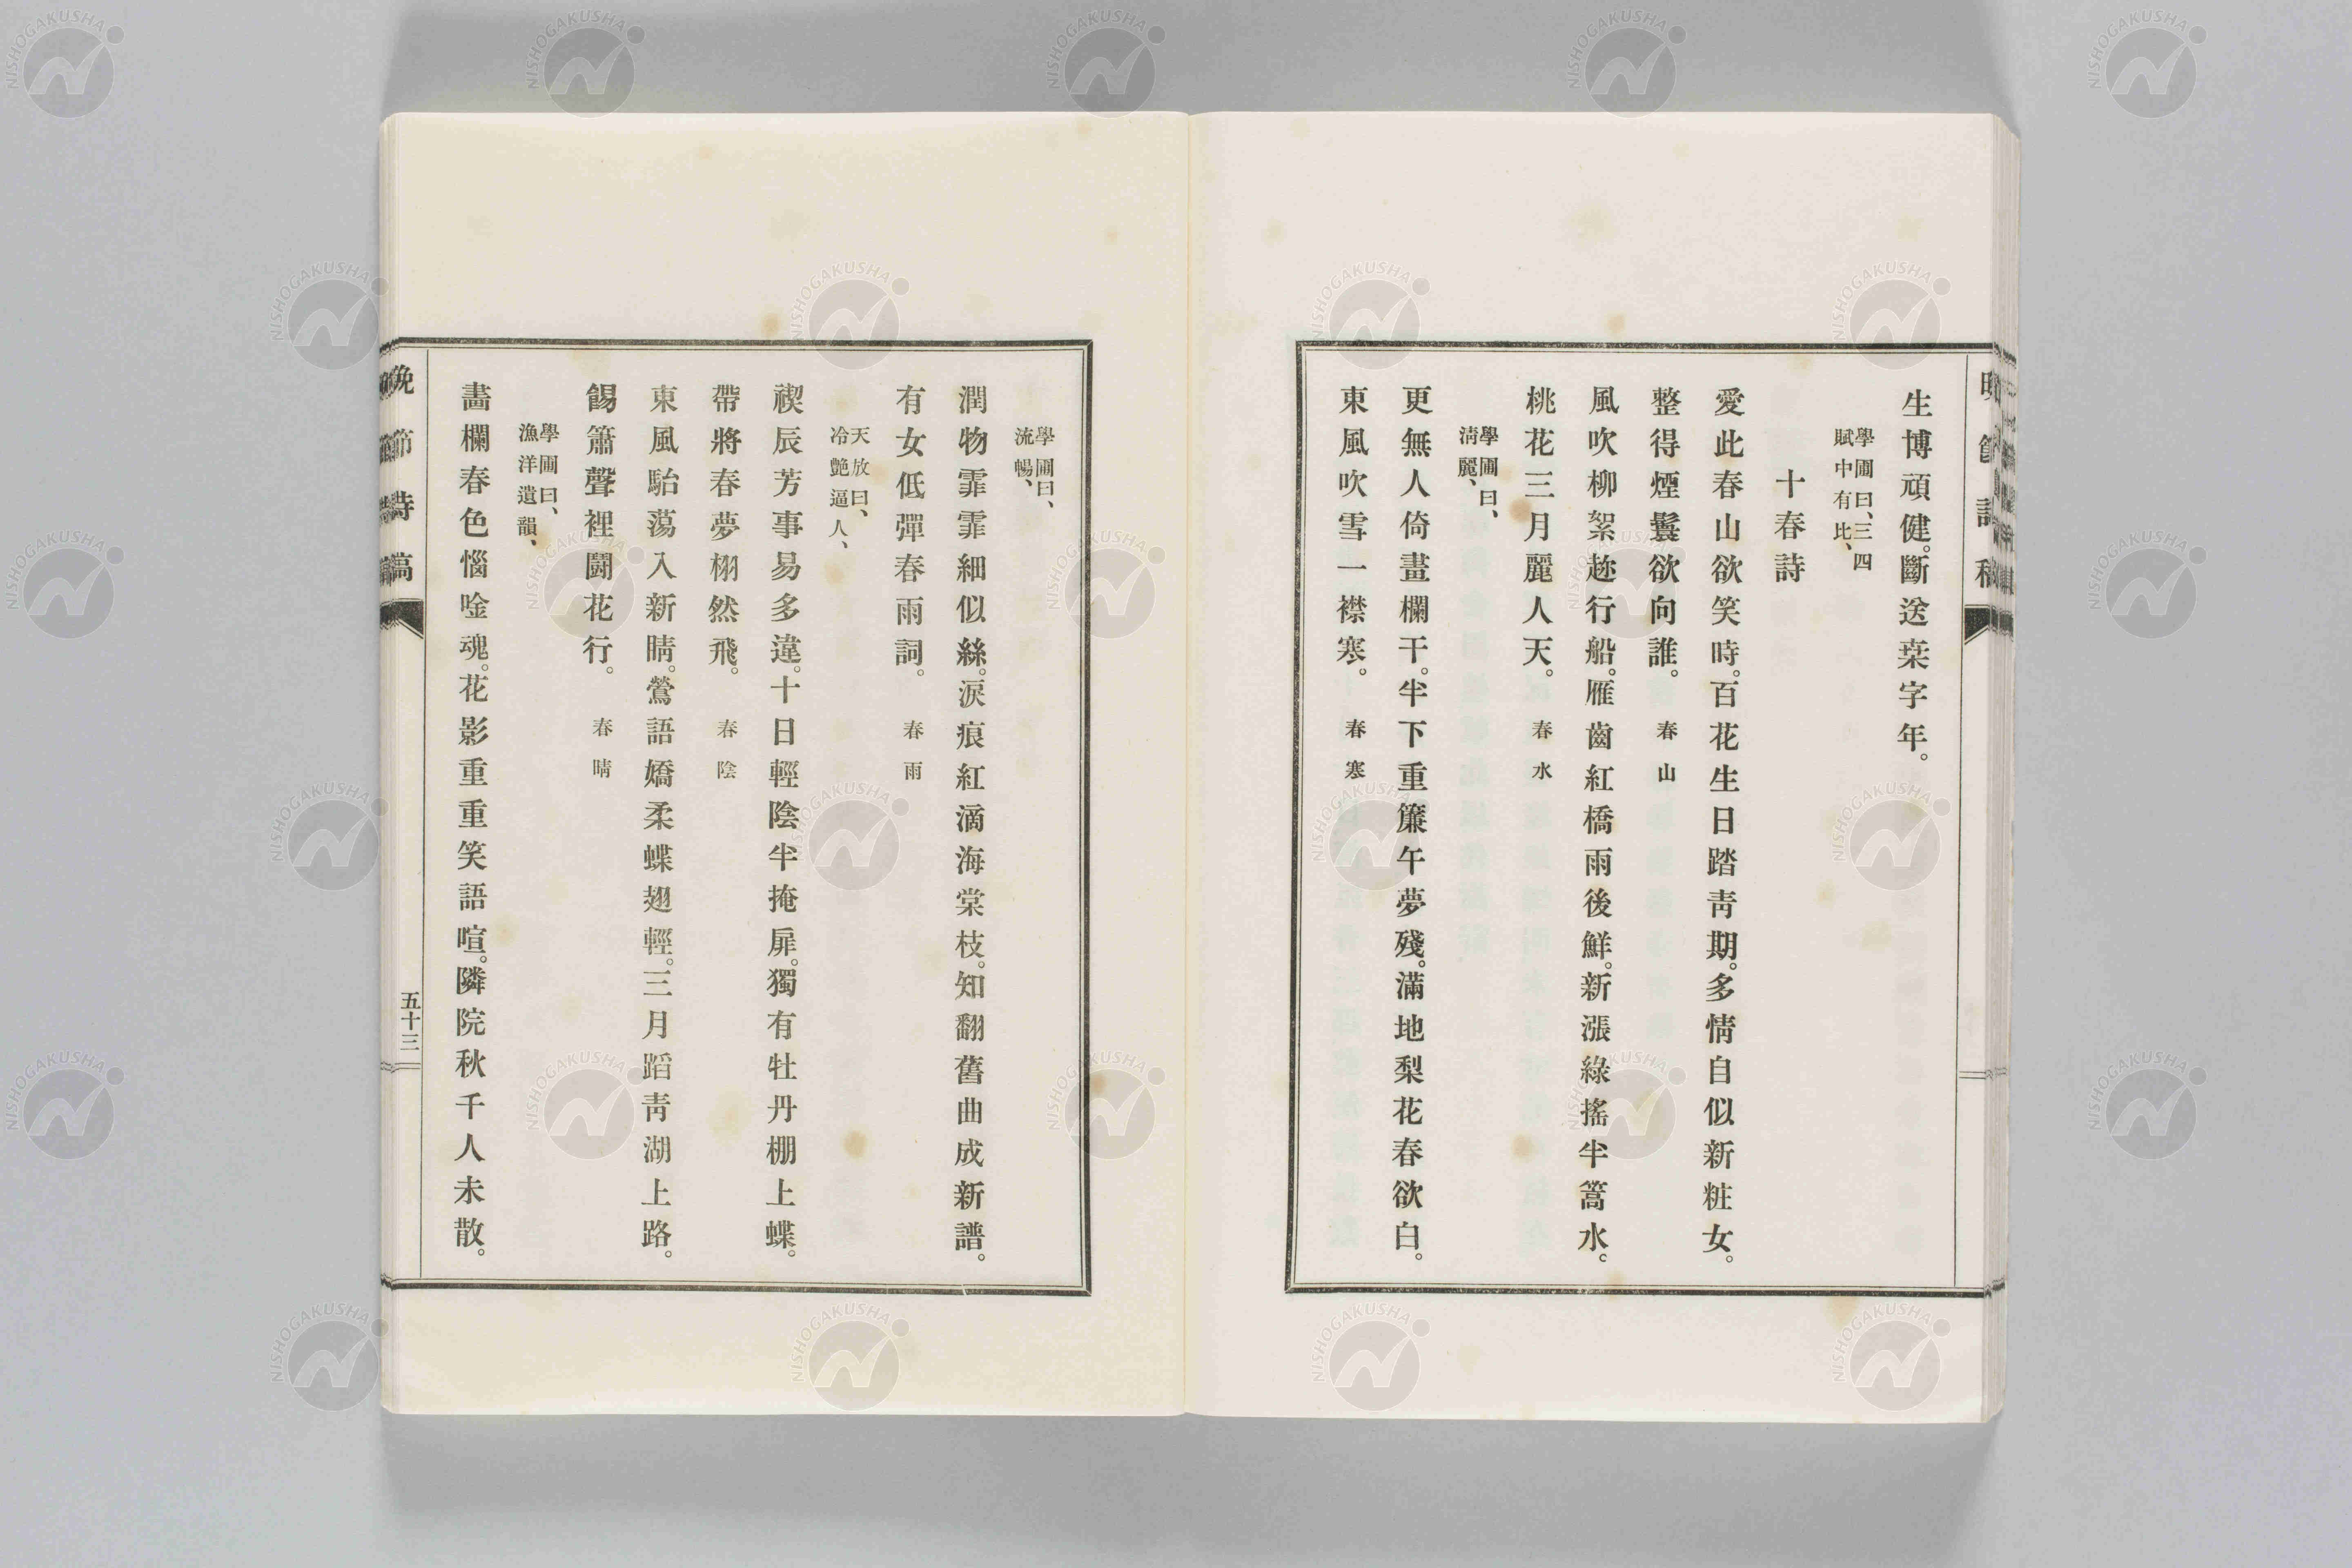 晚節詩稿
生博頑健。斷送桒字年。
學圃曰、三四
賦中有比、
十春詩
愛此春山欲笑時。百花生日踏靑期。多情自似新粧女。
整得煙鬟欲向誰。 春山
風吹柳絮趂行船。雁齒紅橋雨後鮮。新漲綠搖半篙水。
桃花三月麗人天。 春水
學圃曰、
淸麗、
更無人倚畫欄干。半下重簾午夢殘。滿地梨花春欲白。
東風吹雪一襟寒。 春寒
學圃曰、
流暢、
潤物霏霏細似絲。淚痕紅滴海棠枝。知翻舊曲成新譜。
有女低彈春雨詞。 春雨
天放曰、
冷艷逼人、
禊辰芳事易多違。十日輕陰半掩扉。獨有牡丹棚上蝶。
帶將春夢栩然飛。 春陰
東風駘蕩入新晴。鶯語嬌柔蝶翅輕。三月蹈靑湖上路。
餳簫聲裡鬪花行。 春晴
學圃曰、
漁洋遺韻、
畵欄春色惱唫魂。花影重重笑語喧。隣院秋千人未散。
晚節詩稿
五十三
NISHOGAKUSHA